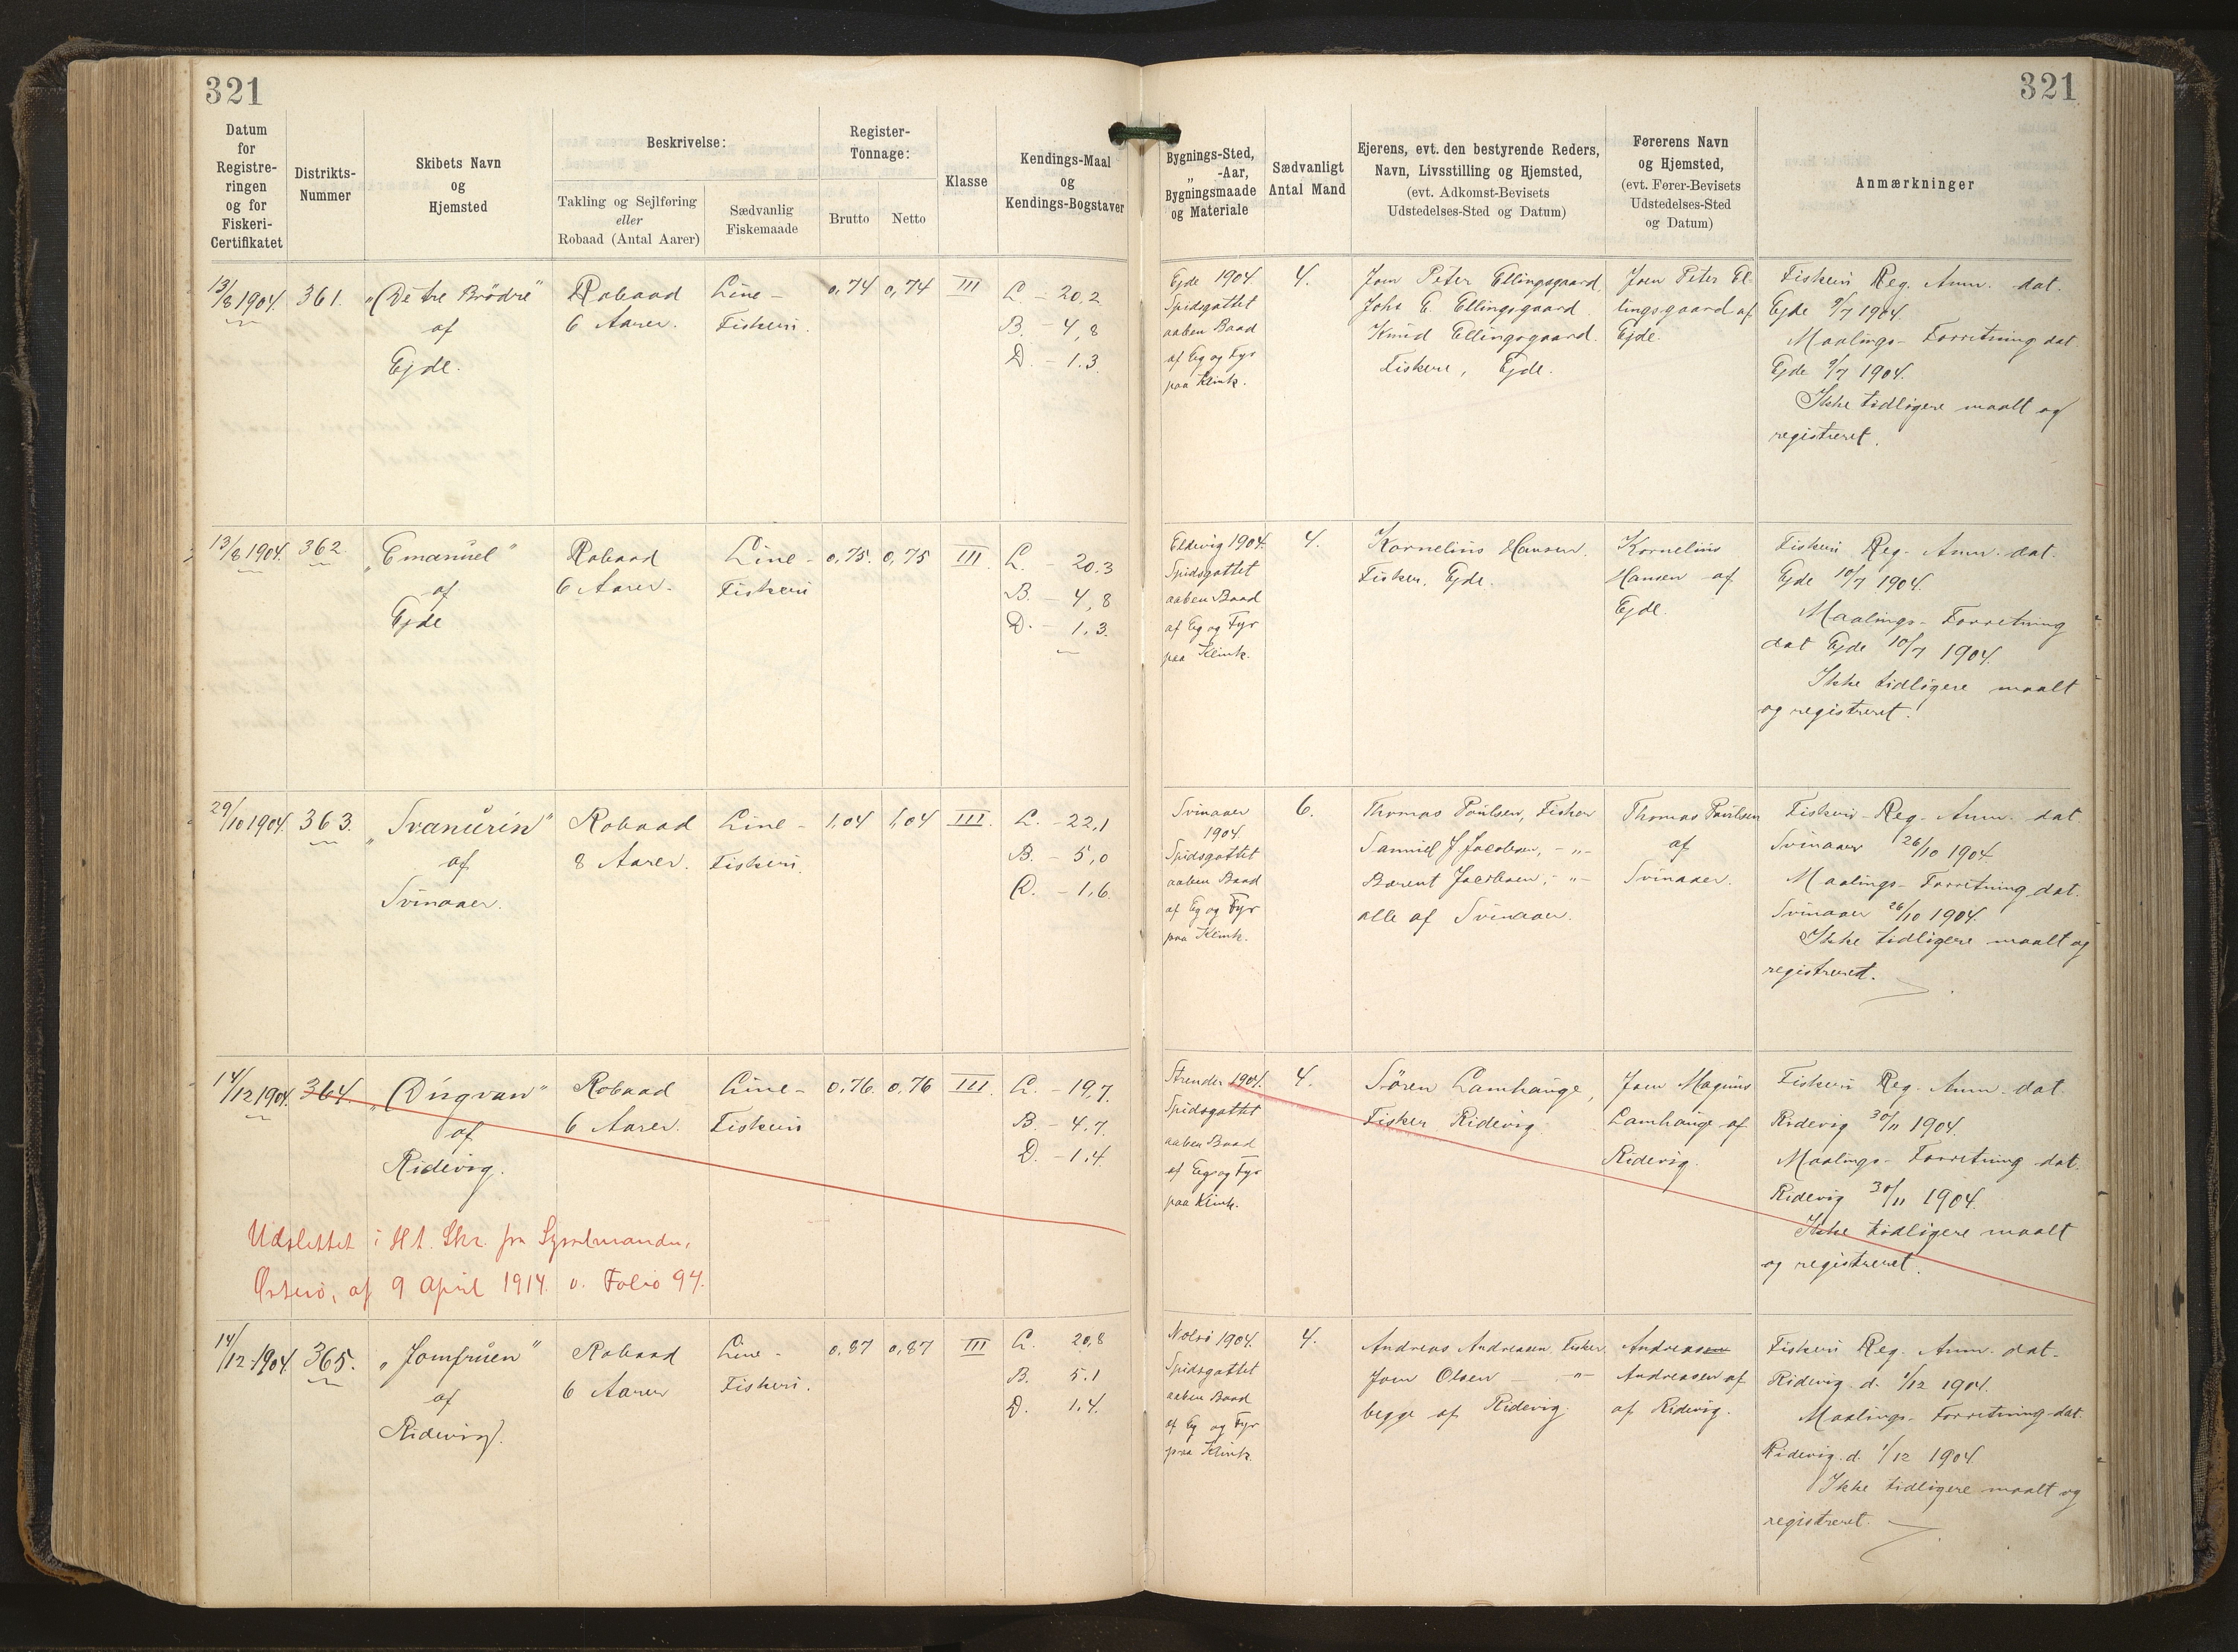 321
321
Datum
for
Registre-
ringen
og for
Fiskeri-
Certifikatet
Distrikts-
Nummer
Skibets Navn
og
Hjemsted
Beskrivelse:
Takling og Sejlføring
eller
Robaad (Antal Aarer)
Sædvanlig
Fiskemaade
Register-
Tonnage:
Brutto
Netto
Klasse
Kendings-Maal
og
Kendings-Bogstaver
Bygnings-Sted,
„ -Aar,
Bygningsmaade
og Materiale
Sædvanligt
Antal Mand
Ejerens, evt. den bestyrende Reders,
Navn, Livsstilling og Hjemsted,
(evt. Adkomst-Bevisets
Udstedelses-Sted og Datum)
Førerens Navn
og Hjemsted,
(evt. Fører-Bevisets
Udstedelses-Sted
og Datum)
Anmærkninger
13/8 1904.
361.
„De tre Brödre"
af
Ejde.
Robaad
6 Aarer.
Line-
Fiskeri.
0,74
0,74
III
L. - 20,2
B. - 4,8
D. - 1.3.
Ejde 1904.
Spidsgattet
aaben Baad
af Eg og Fyr
paa Klink.
4.
Joen Peter Ellingsgaard,
Johs E. Ellingsgaard
Knud Ellingsgaard.
Fiskere, Ejde.
Joen Peter El-
lingsgaard af
Ejde.
Fiskeri Reg. Anm. dat.
Ejde 9/7 1904.
Maalings-Forretning dat
Ejde 9/7 1904.
Ikke tidligere maalt og
registreret.
13/8 1904.
362.
„Emanuel"
af
Ejde
Robaad
6 Aarer.
Line-
Fiskeri
0,75.
0,75
III.
L. - 20.3
B. - 4,8
D. - 1.3.
Eldevig 1904.
Spidsgattet
aaben Baad
af Eg og Fyr
paa Klink.
4.
Kornelius Hansen.
Fisker. Ejde.
Kornelius
Hansen af
Ejde.
Fiskeri Reg. Anm. dat.
Ejde 10/7 1904.
Maalings-Forretning
dat Ejde 10/7 1904.
Ikke tidligere maalt
og registreret.
29/10 1904.
363.
„Svanurin"
af
Svinaaer.
Robaad
8 Aarer.
Line-
Fiskeri.
1,04
1,04
III.
L. - 22,1
B. - 5,0
D. - 1,6.
Svinaaer
1904.
Spidsgattet
aaben Baad
af Eg og Fyr
paa Klink.
6.
Thomas Poulsen, Fisker
Samuel J. Jacobsen, - „-
Barent Jacobsen, - „-
alle af Svinaaer.
Thomas Poulsen
af
Svinaaer.
Fiskeri-Reg. Anm. dat
Svinaaer 26/10 1904
Maalings-Forretning dat.
Svinaaer 26/10 1904.
Ikke tidligere maalt og
registreret.
14/12 1904.
364.
„Dugvan"
af
Ridevig.
Robaad
6 Aarer.
Line-
Fiskeri
0,76.
0,76
III.
L. - 19,7.
B. - 4.7.
D. - 1.4.
Strender 1904.
Spidsgattet
aaben Baad
af Eg og Fyr
paa Klink.
4.
Sören Lamhauge,
Fisker Ridevig.
Joen Magnus
Lamhauge af
Ridevig.
Fiskeri Reg. Anm. dat.
Ridevig 30/11 1904.
Maalings-Forretning dat.
Ridevig 30/11 1904.
Ikke tidligere maalt
og registreret.
Udslettet i Ht. Skr. fra Sysselmanden,
Østerø, af 9 April 1914. v. Folio 94.
14/12 1904.
365.
„Jomfruen"
af
Ridevig.
Robaad
6 Aarer
Line-
Fiskeri.
0,87
0,87
III
L. 20,8
B. 5.1
D. 1.4.
Nolsö 1904.
Spidsgattet
aaben Baad
af Eg og Fyr
paa Klink.
4.
Andreas Andreasen Fisker
Joen Olsen - „-
begge af Ridevig.
Andreasen
Andreasen af
af Ridevig.
Fiskeri Reg. Anm. dat-
Ridevig d. 1/12 1904.
Maalings-Forretning dat.
Ridevig d. 1/12 1904
Ikke tidligere maalt og
registreret.